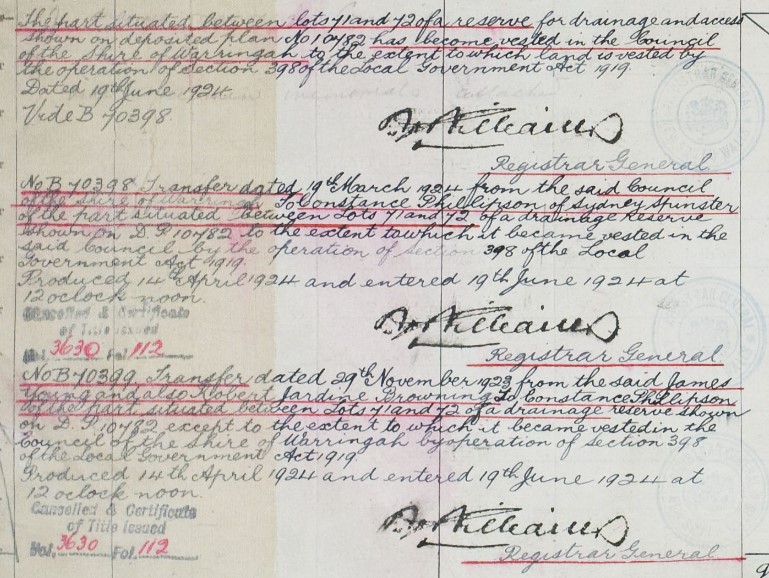 The part situated between lots 71 and 72 of a reserve for drainage and access
shown on deposited plan No 10782 has become vested in the Council
of the Shire of Warringah to the extent to which land is vested by
the operation of Section 398 of the Local Government Act 1919.
Dated 19th June 1924.
Vide B 70398.
Registrar General
No B 70398 Transfer dated 19th March 1924 from the said Council
of the Shire of Warringah To Constance Phillipson of Sydney Spinster
of the part situated between Lots 71 and 72 of a drainage Reserve
shown on D.P. 10782 to the extent to which it became vested in the
said Council by the operation of Section 398 of the Local
Government Act 1919.
Produced 14th April 1924 and entered 19th June 1924 at
12 oclock noon.
Cancelled & Certificate
of Title issued
Vol. 3630 Fol. 112
Registrar General
No B 70399, Transfer dated 29th November 1923 from the said James
Young and also Robert Jardine Browning To Constance Phillipson
of the part situated between Lots 71 and 72 of a drainage reserve shown
on D.P. 10782 except to the extent to which it became vested in the
Council of the Shire of Warringah by operation of Section 398
of the Local Government Act 1919.
Produced 14th April 1924 and entered 19th June 1924 at
12 oclock noon.
Cancelled & Certificate
of Title issued
Vol. 3630 Fol. 112
Registrar General